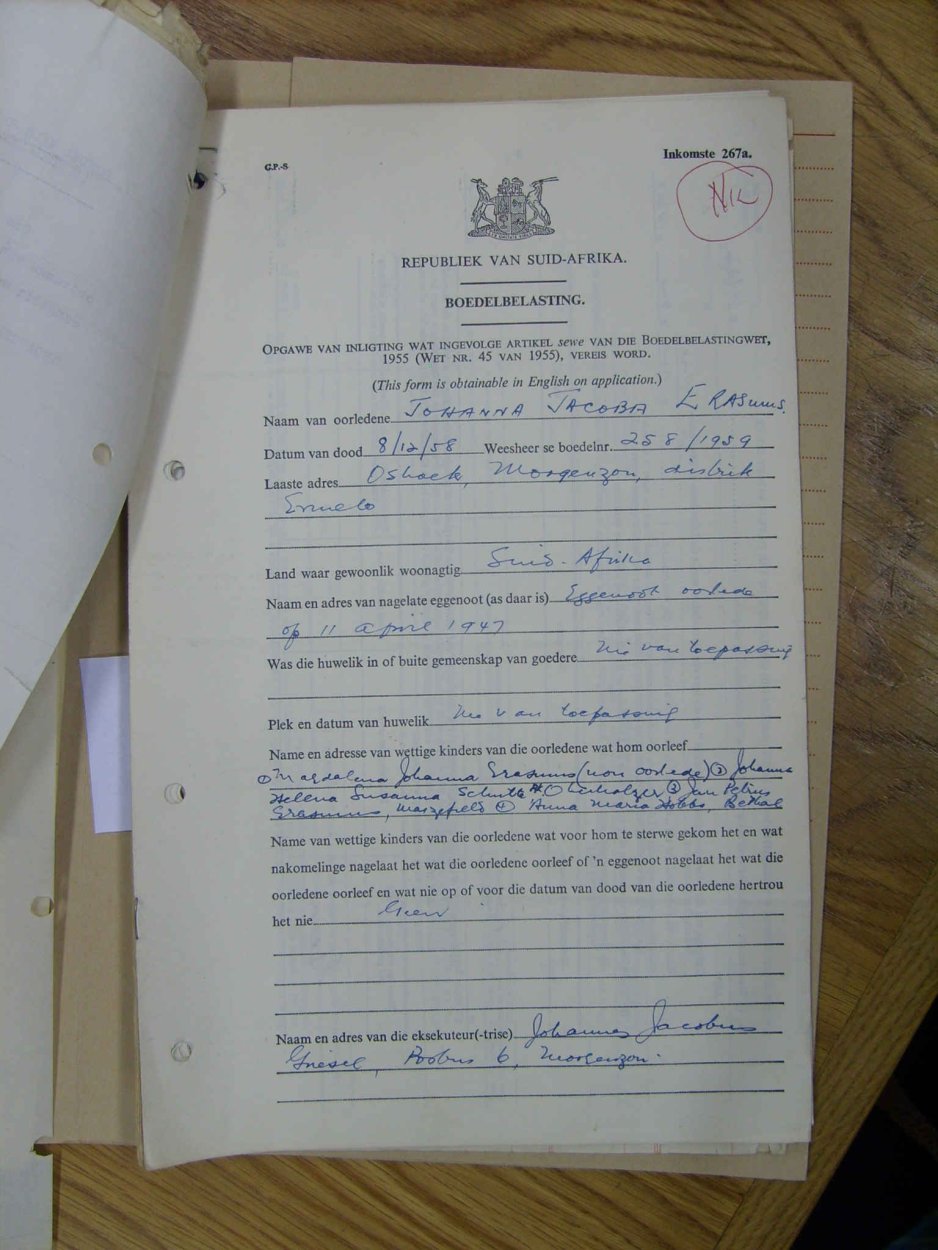 G.P.-S
Inkomste 267a.
NIL
REPUBLIEK VAN SUID-AFRIKA.
BOEDELBELASTING.
OPGAWE VAN INLIGTING WAT INGEVOLGE ARTIKEL sewe VAN DIE BOEDELBELASTINGWET,
1955 (WET NR. 45 VAN 1955), VEREIS WORD.
(This form is obtainable in English on application.)
Naam van oorledene JOHANNA JACOBA ERASmus.
Datum van dood 8/12/58 Weesheer se boedelnr. 258/1959
Laaste adres Oshoek, Morgenzon, distrik
Ermelo
Land waar gewoonlik woonagtig Suid-Afrika
Naam en adres van nagelate eggenoot (as daar is) Eggenoot oorlede
op 11 april 1947
Was die huwelik in of buite gemeenskap van goedere Nie van toepassing
Plek en datum van huwelik Nie van toepassing
Name en adresse van wettige kinders van die oorledene wat hom oorleef
① Magdalena Johanna Erasmus (nou oorlede) ② Johanna
Helena Susanna Schutte Oberholzer ③ Jan Petrus
Erasmus, Maizefield ④ Anna Maria Hobbs, Bethal
Name van wettige kinders van die oorledene wat voor hom te sterwe gekom het en wat
nakomelinge nagelaat het wat die oorledene oorleef of 'n eggenoot nagelaat het wat die
oorledene oorleef en wat nie op of voor die datum van dood van die oorledene hertrou
het nie Geen
Naam en adres van die eksekuteur(-trise) Johannes Jacobus
Griesel, Posbus 6, Morgenzon.